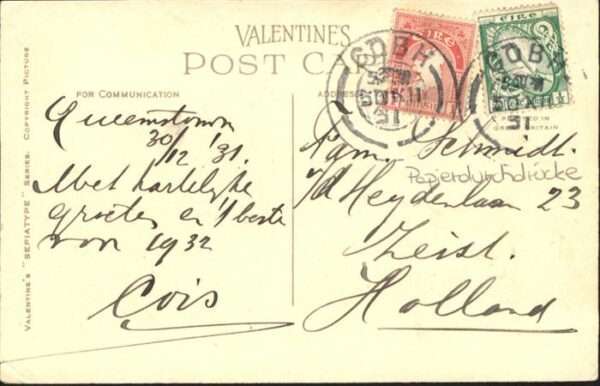 VALENTINES
POST CA
FOR COMMUNICATION
ADDRESS
VALENTINE'S "SEPIATYPE" SERIES. COPYRIGHT PICTURE
Queenstown
30/12 '31.
Met hartelijke
groeten en 't beste
von 1932
Cois
COBH
31
EIRE
COBH
31
EIRE
PRINTED IN
GREAT BRITAIN
Fam. Schmidt.
Papierdurchdrücke
v/d Heydenlaan 23
Zeist.
Holland